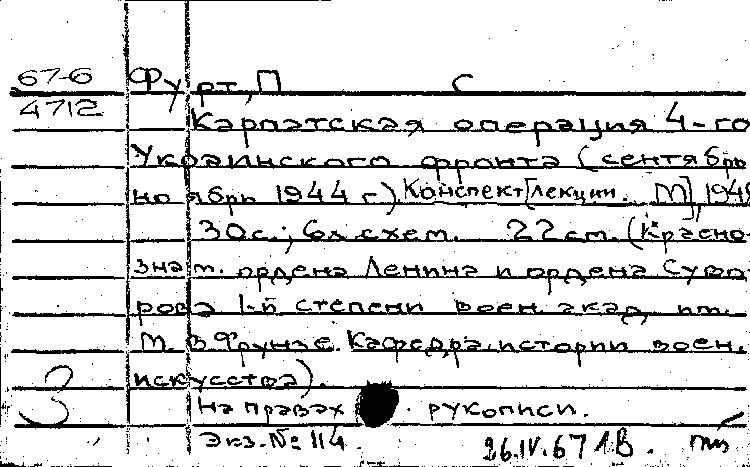 67-6 Фурт, П С
4712
Карпатская операция 4-го
Украинского фронта (сентябрь
ноябрь 1944 г). Конспект [лекции. М], 194
30с.; 6л.схем. 22 cm. (Красно-
знам. ордена Ленина и ордена Суво
рова 1-й степени воен. акад. им.
М. В. Фрунзе. Кафедра истории воен.
искусства).
3
На правах рукописи.
Экз. № 114. 26.IV.67 1В.